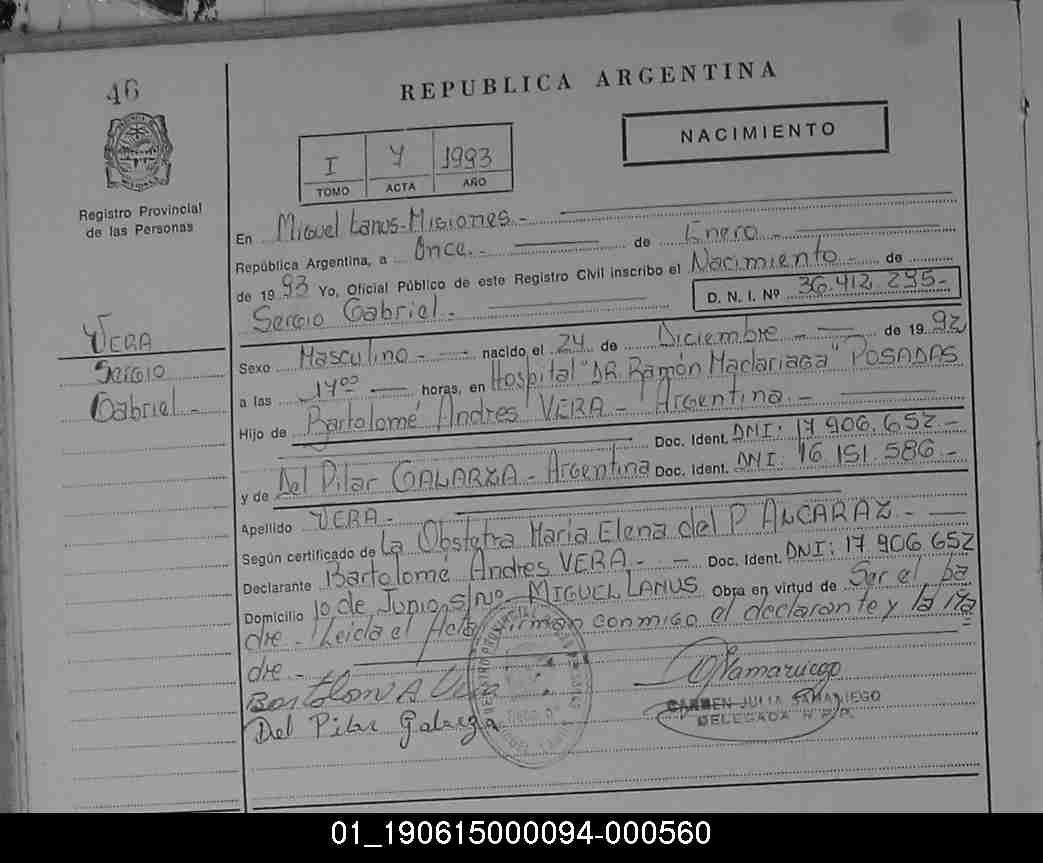 46
REPUBLICA ARGENTINA
NACIMIENTO
I 7 1993
TOMO ACTA AÑO
Registro Provincial
de las Personas
VERA
Sergio
Gabriel -
En Miguel Lanus-Misiones -
República Argentina, a Once - de Enero -
de 19 93 Yo, Oficial Público de este Registro Civil inscribo el Nacimiento - de
Sergio Gabriel - D. N. I. Nº 36.412.295-
Sexo Masculino - nacido el 24 de Diciembre - de 19 92
a las 14⁰⁰ horas, en Hospital "DR. Ramón Madariaga" POSADAS
Hijo de Bartolomé Andres VERA - Argentina -
Doc. Ident. DNI: 17 906.652 -
y de Del Pilar GALARZA - Argentina Doc. Ident. DNI: 16 151.586 -
Apellido VERA -
Según certificado de La Obstetra Maria Elena del P ALCARAZ -
Declarante Bartolomé Andres VERA - Doc. Ident. DNI: 17 906 652
Domicilio 10 de Junio s/nº MIGUEL LANUS Obra en virtud de Ser el pa
dre - Leida el Acta, firman conmigo el declarante y la Ma
dre -
Del Pilar Galarza
CARMEN JULIA SAMANIEGO
DELEGADA R.P.P.
01_190615000094-000560